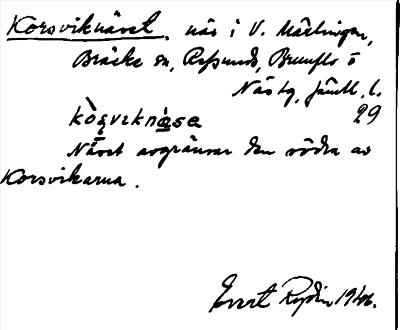 Korsviknäset. näs i V. Mårtingen,
Bräcke sn, Refsunds, Brunflo o
Näs tg, Jämtl. l.
29
Näset avgränsar den södra av
Korsvikarna.
Evert Rydin 1946.